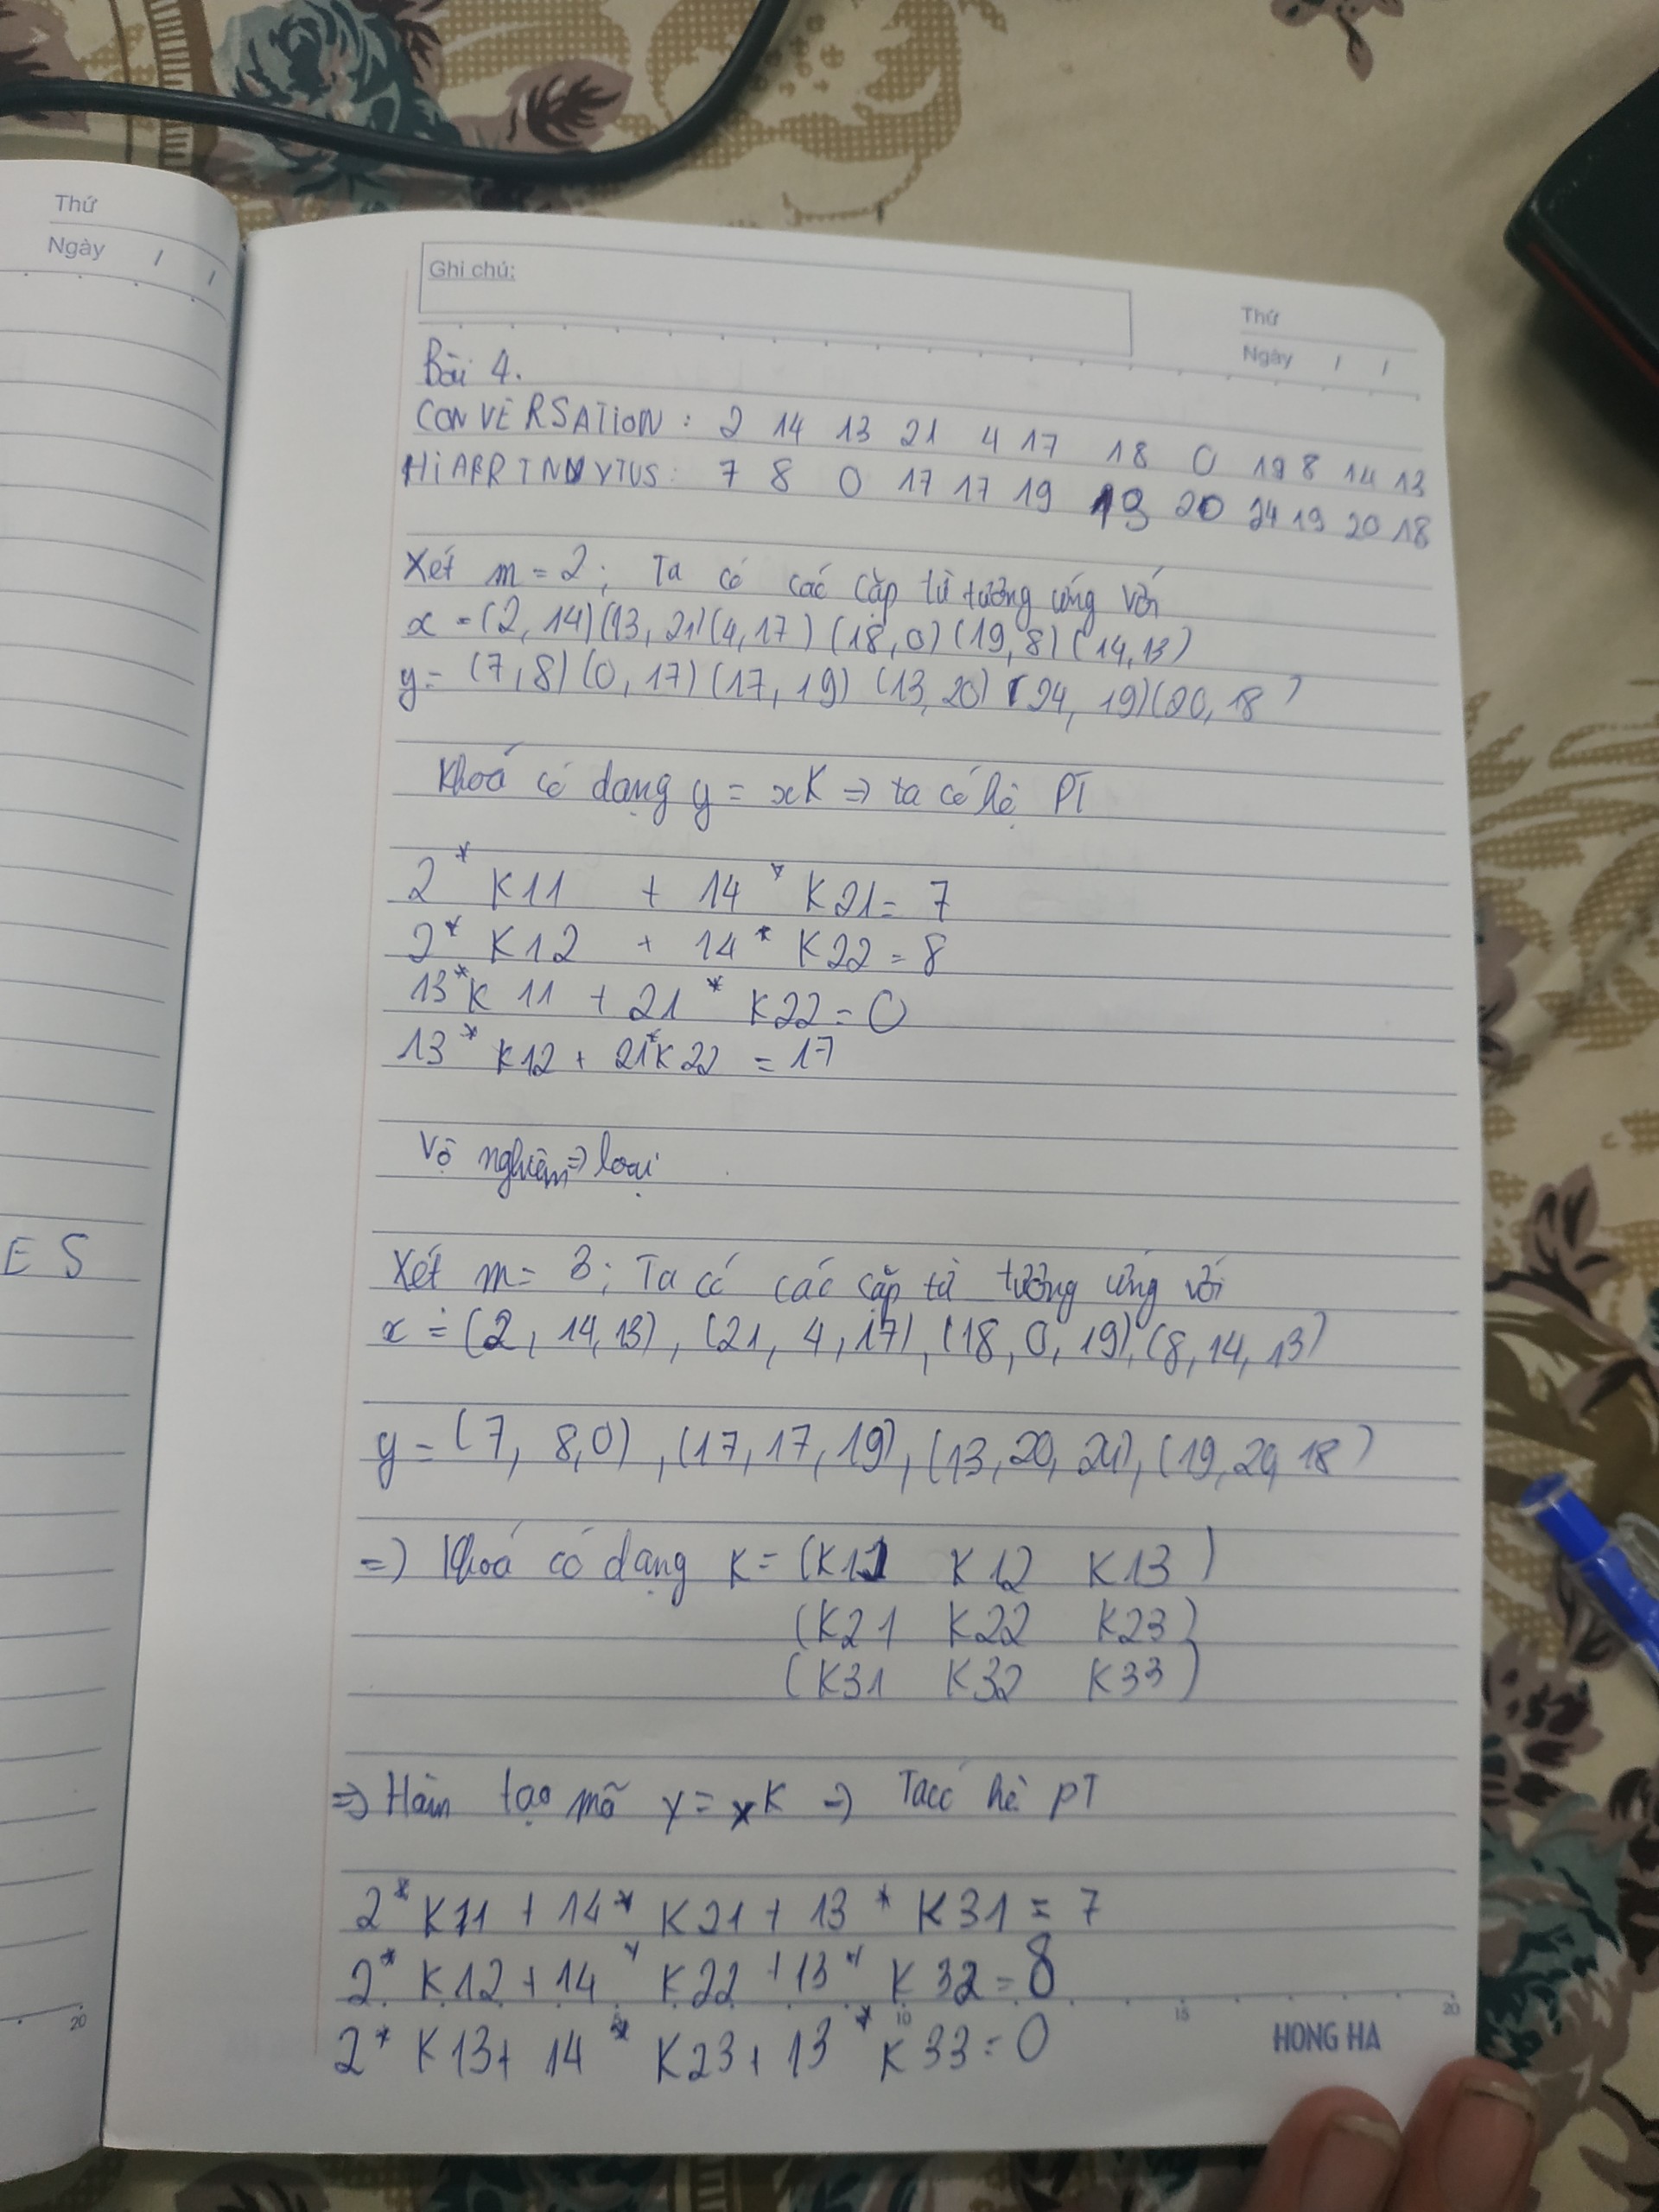 Thứ
Ngày / /
E S
20
Ghi chú:
Thứ
Ngày / /
Bài 4.
CONVERSATION : 2 14 13 21 4 17 18 0 19 8 14 13
HIARRTNUYTUS: 7 8 0 17 17 19 13 20 24 19 20 18
Xét m = 2; Ta có các cặp từ tương ứng với
x = (2, 14) (13, 21) (4, 17) (18, 0) (19, 8) (14, 13)
y = (7, 8) (0, 17) (17, 19) (13, 20) (24, 19) (20, 18)
Khoá có dạng y = xK => ta có hệ PT
2* K11 + 14 * K21 = 7
2* K12 + 14 * K22 = 8
13* K 11 + 21 * K22 = 0
13* K12 + 21*K22 = 17
Vô nghiệm => loại
Xét m = 3; Ta có các cặp từ tương ứng với
x = (2, 14, 13), (21, 4, 17), (18, 0, 19), (8, 14, 13)
y = (7, 8, 0), (17, 17, 19), (13, 20, 24), (19, 20, 18)
=> Khoá có dạng K = (K11 K12 K13)
(K21 K22 K23)
(K31 K32 K33)
=> Hàm tạo mã y = xK => Ta có hệ PT
2* K11 + 14* K21 + 13 * K31 = 7
2* K12 + 14 * K22 + 13 * K32 = 8
10 15 20
2* K13 + 14 * K23 + 13 * K33 = 0
HONG HA